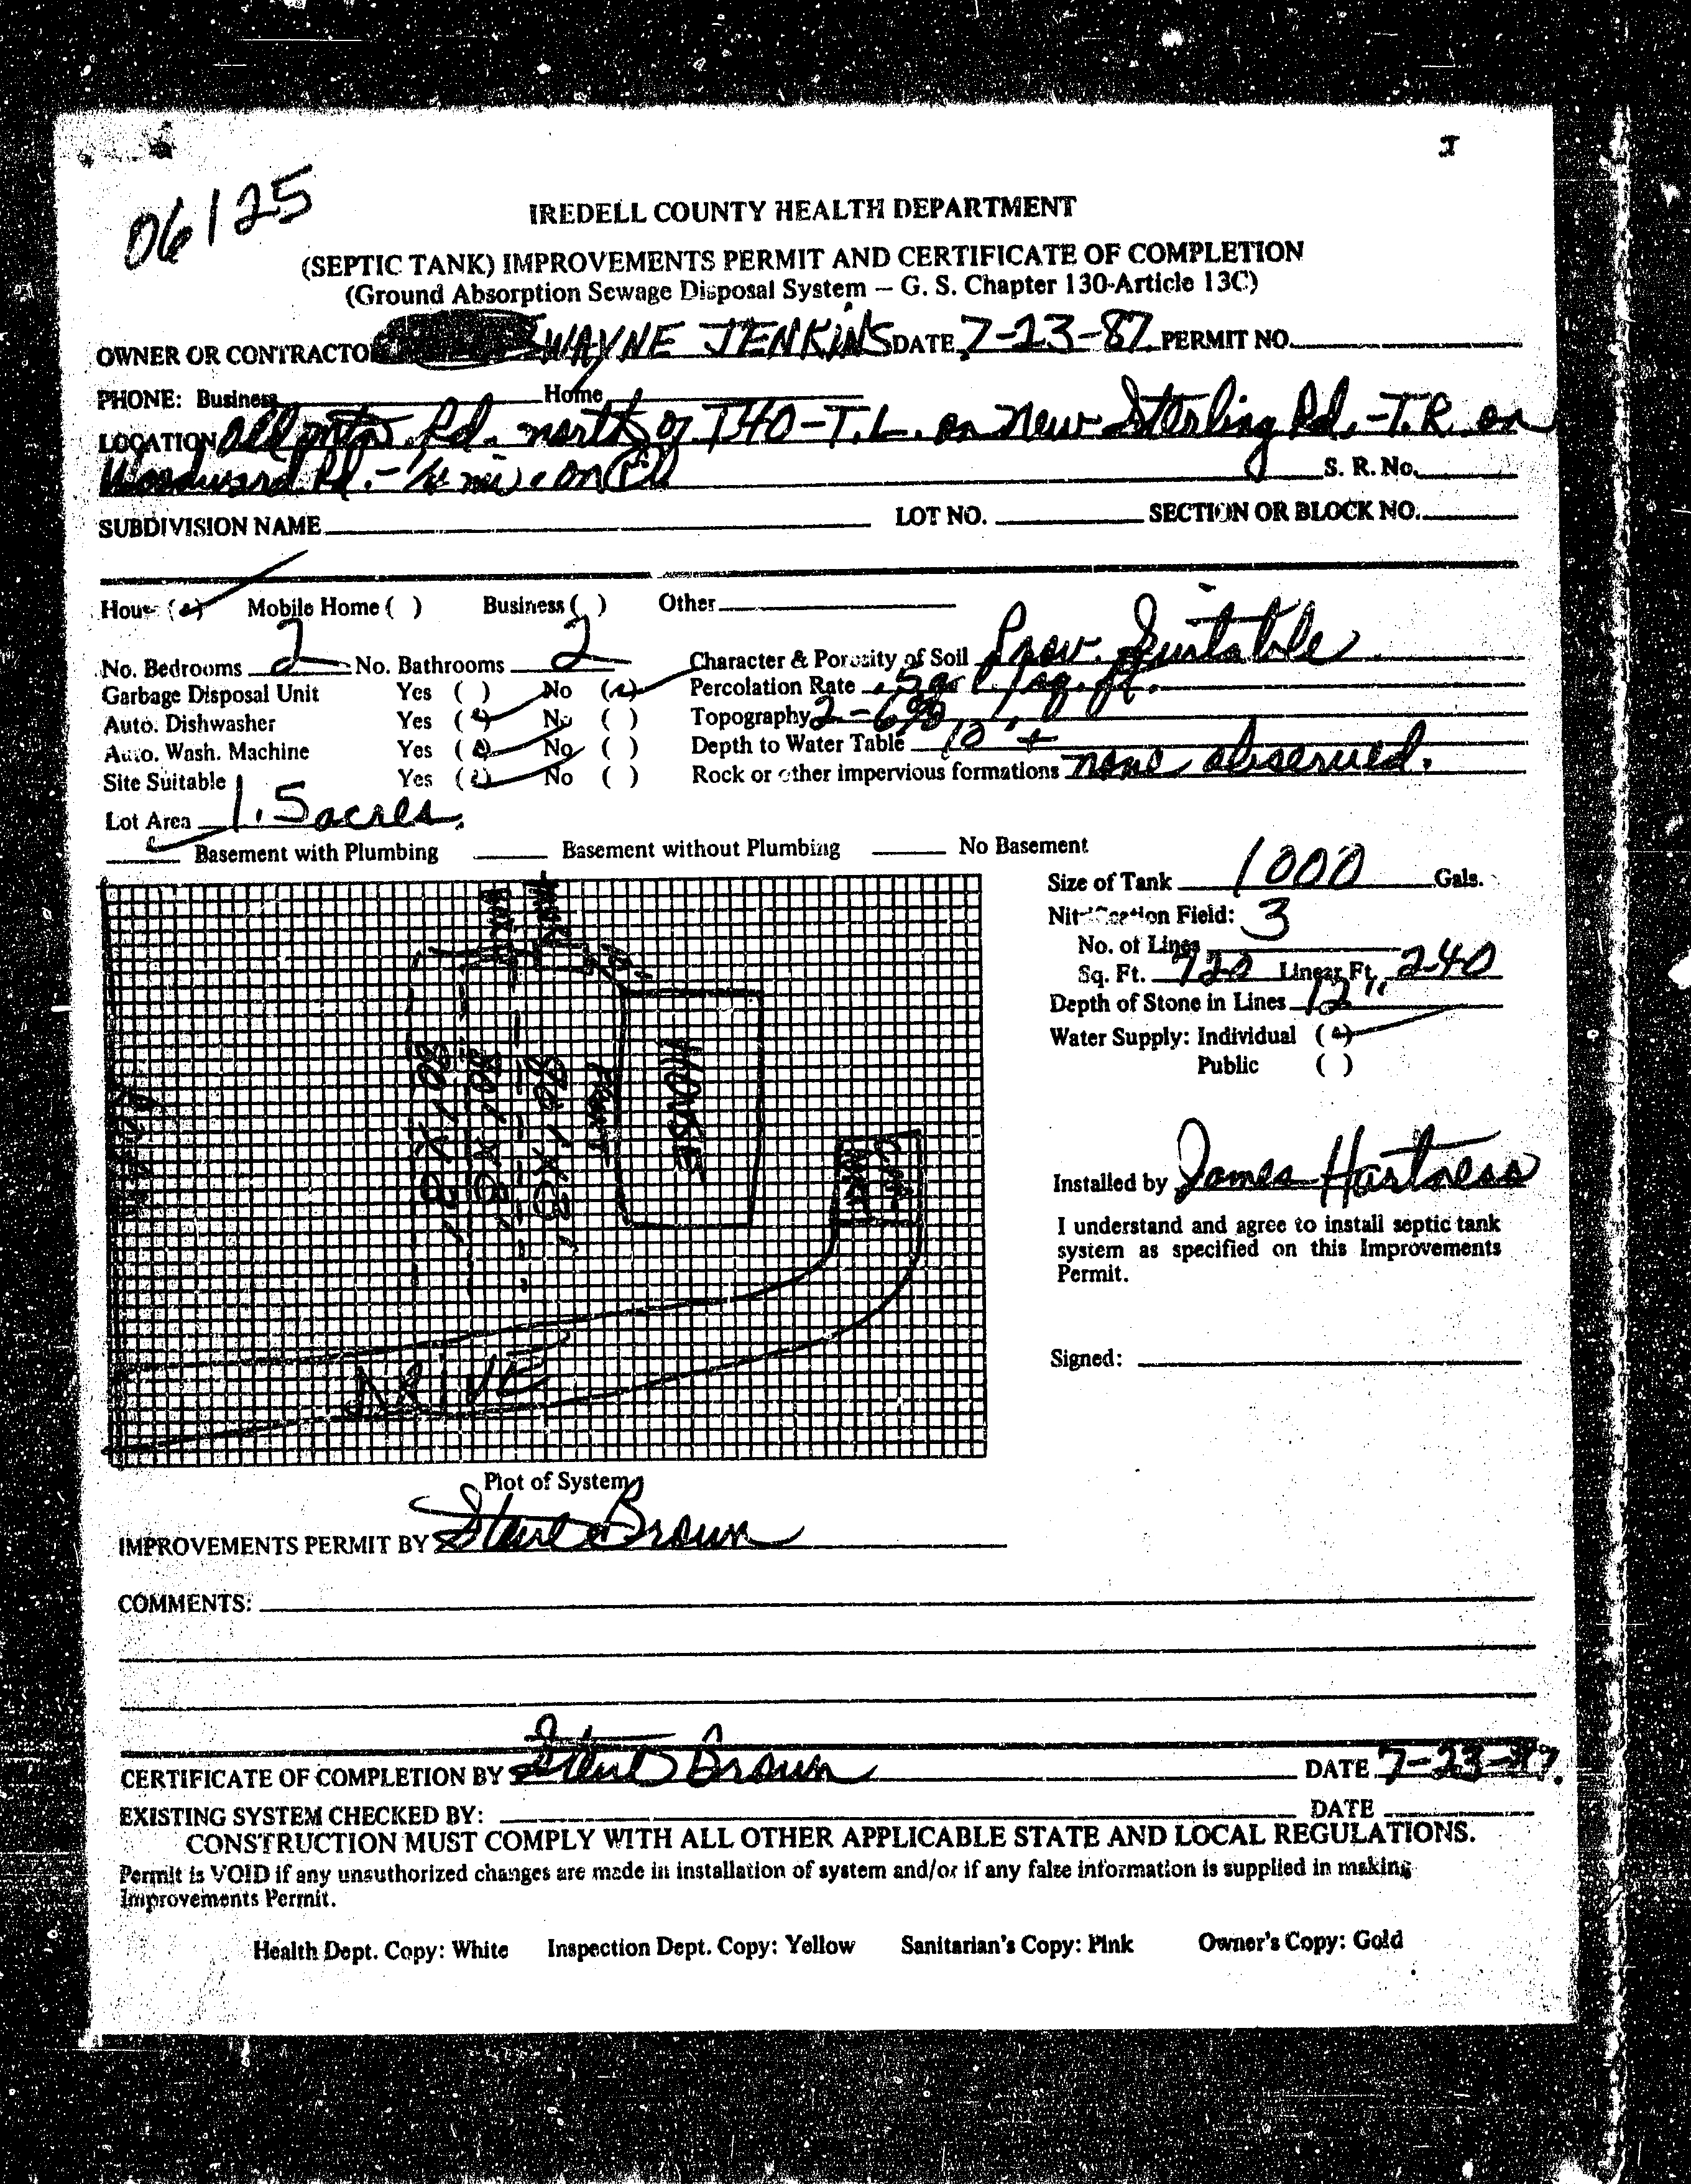 I
06125
IREDELL COUNTY HEALTH DEPARTMENT
(SEPTIC TANK) IMPROVEMENTS PERMIT AND CERTIFICATE OF COMPLETION
(Ground Absorption Sewage Disposal System – G. S. Chapter 130-Article 13C)
OWNER OR CONTRACTOR WAYNE JENKINS DATE 7-23-87 PERMIT NO.
PHONE: Business Home
LOCATION Rd. north of I40-T.L. on New Sterling Rd.-T.R. on
Woodward Rd.- 1/4 mi. on
S. R. No.
SUBDIVISION NAME LOT NO. SECTION OR BLOCK NO.
House ( ) Mobile Home ( ) Business ( ) Other
No. Bedrooms 2 No. Bathrooms 2 Character & Porosity of Soil Prov. Suitable
Garbage Disposal Unit Yes ( ) No ( ) Percolation Rate .5 gal/sq. ft.
Auto. Dishwasher Yes ( ) No ( ) Topography 2-6%
Auto. Wash. Machine Yes ( ) No ( ) Depth to Water Table 10'+
Site Suitable Yes ( ) No ( ) Rock or other impervious formations none observed.
Lot Area 1.5 acres.
Basement with Plumbing Basement without Plumbing No Basement
Size of Tank 1000 Gals.
Nitrification Field:
No. of Lines 3
Sq. Ft. 720 Linear Ft. 240
Depth of Stone in Lines 12"
Water Supply: Individual ( )
Public ( )
80'X3'
80'X3'
80'X3'
FRONT
HOUSE
DRIVE
Installed by James Hartness
I understand and agree to install septic tank
system as specified on this Improvements
Permit.
Signed:
Plot of System
IMPROVEMENTS PERMIT BY Steve Brown
COMMENTS:
CERTIFICATE OF COMPLETION BY Steve Brown DATE 7-23-87.
EXISTING SYSTEM CHECKED BY: DATE
CONSTRUCTION MUST COMPLY WITH ALL OTHER APPLICABLE STATE AND LOCAL REGULATIONS.
Permit is VOID if any unauthorized changes are made in installation of system and/or if any false information is supplied in making
Improvements Permit.
Health Dept. Copy: White Inspection Dept. Copy: Yellow Sanitarian's Copy: Pink Owner's Copy: Gold